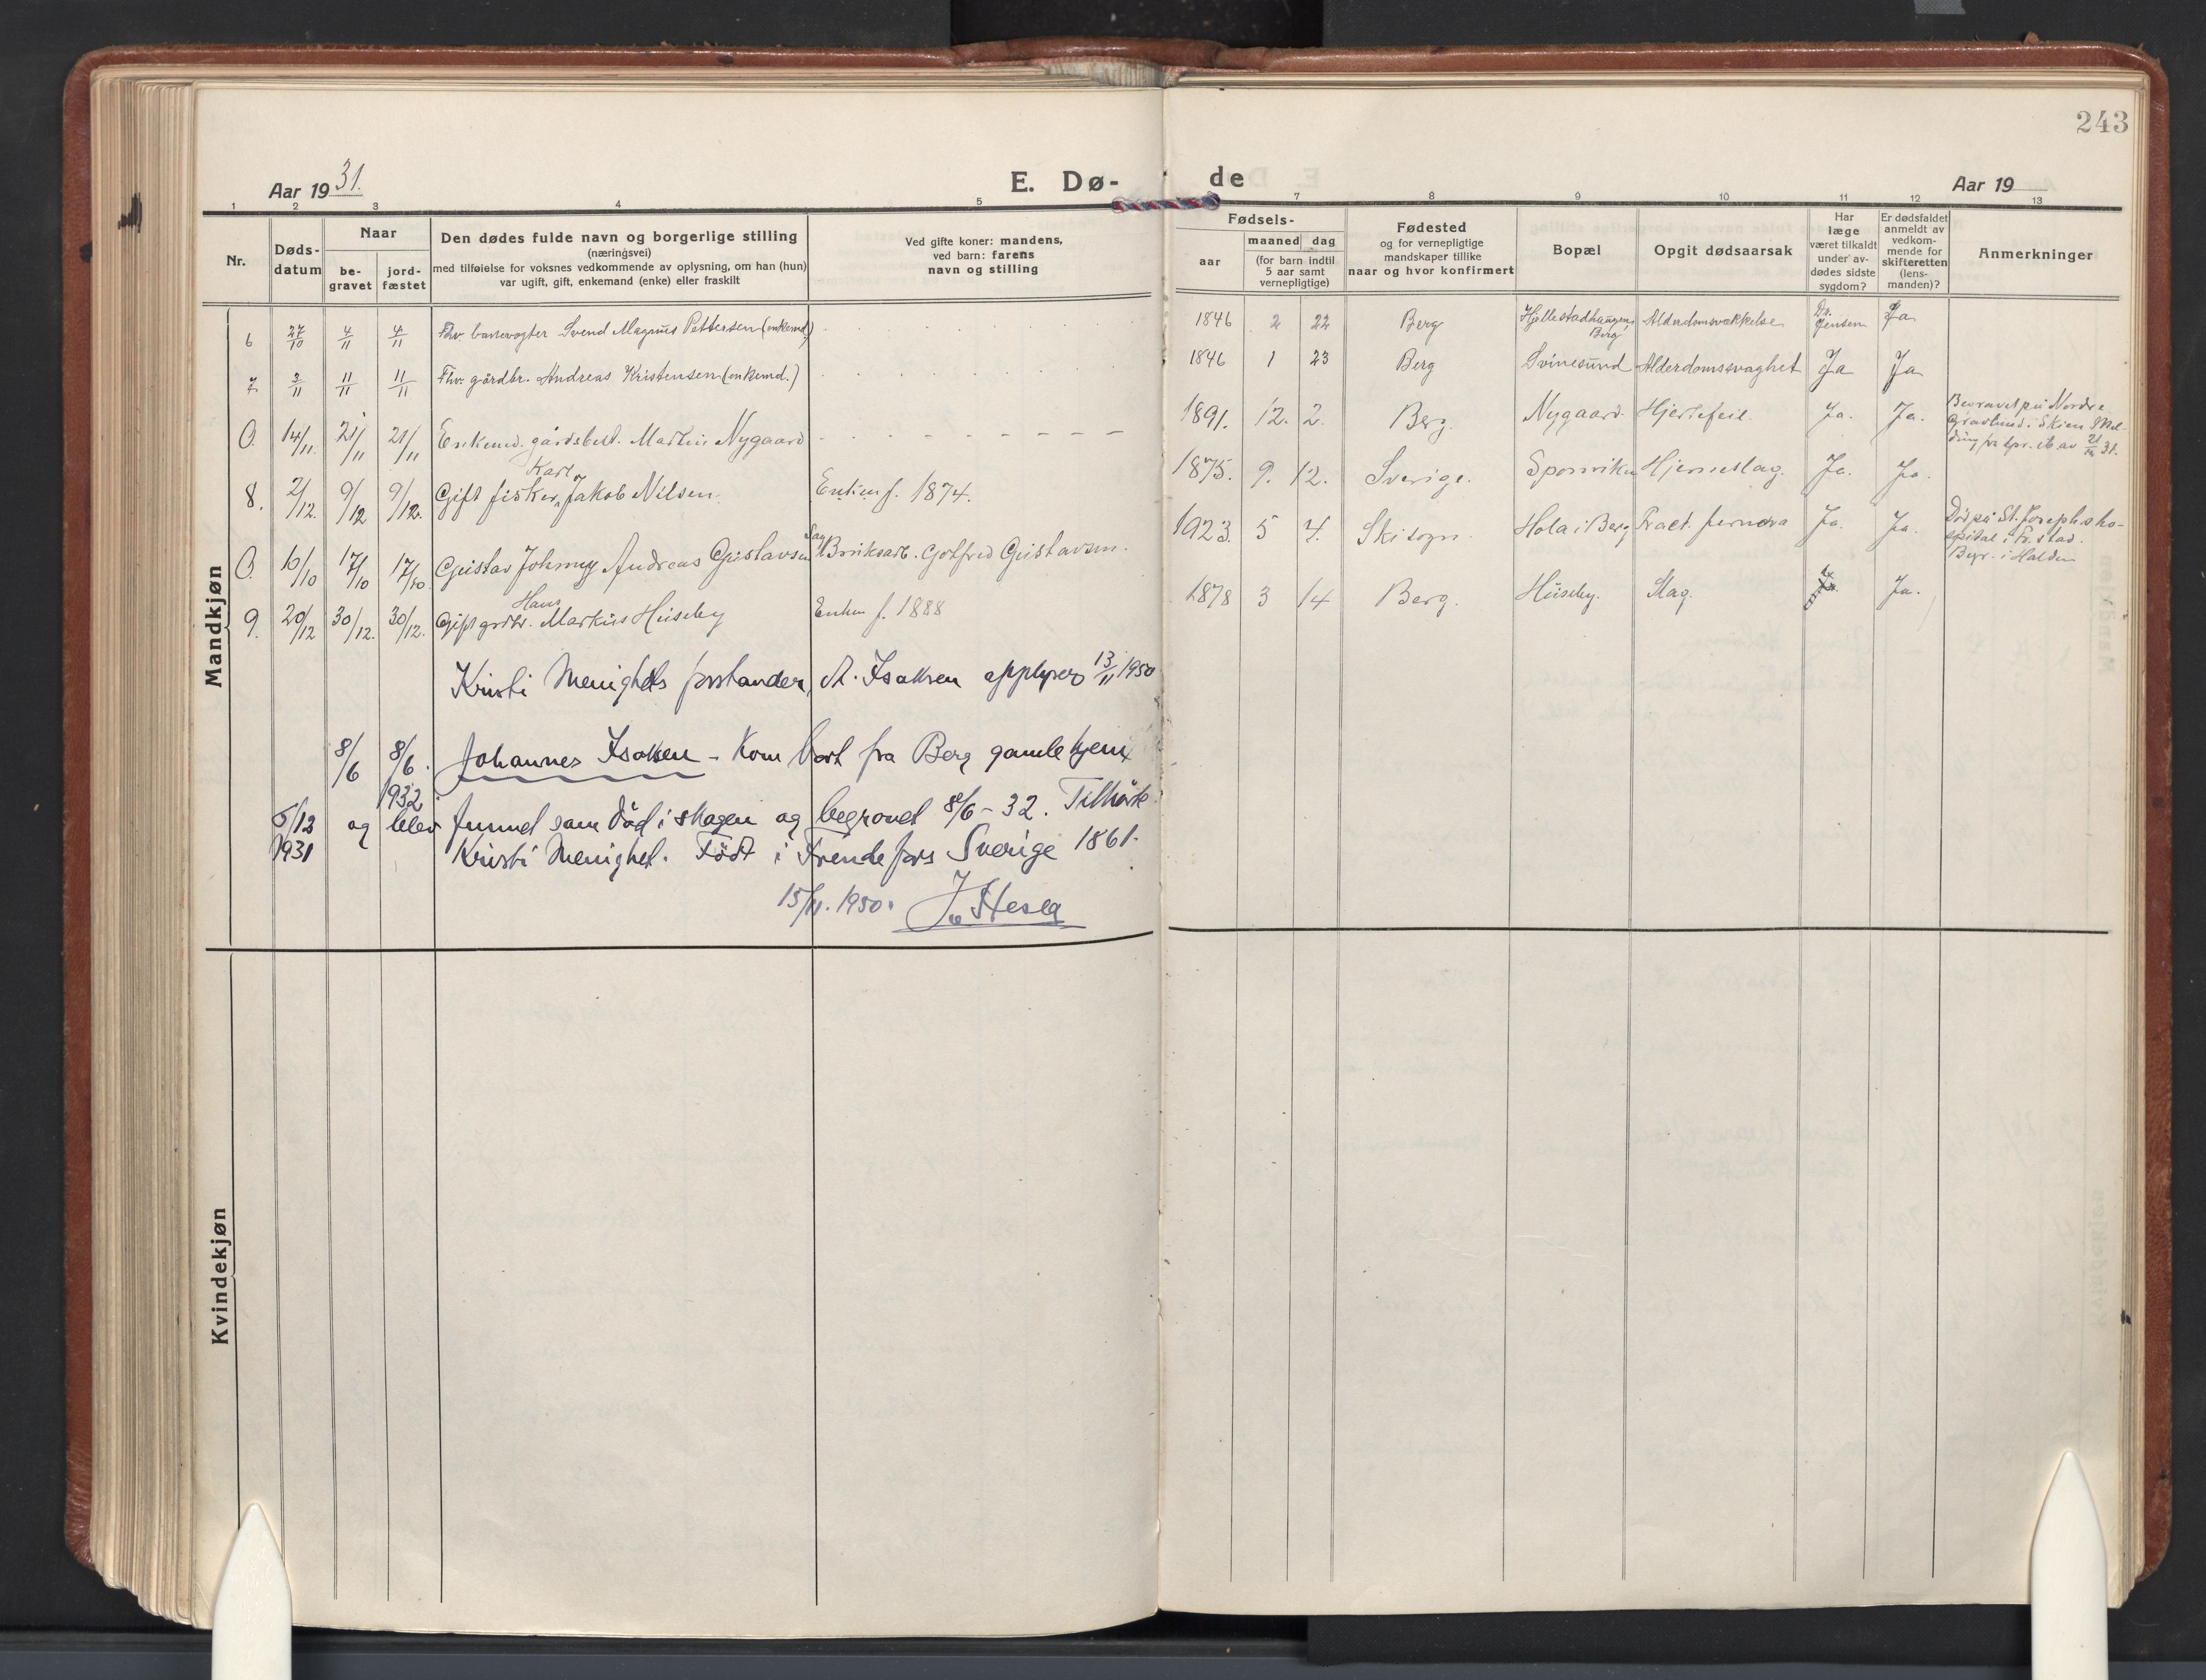 243
Aar 1931.
E. Dø-
de
Aar 19
1 2 3 4 5 7 8 9 10 11 12 13
Nr.
Døds-
datum
Naar
be-
gravet
jord-
fæstet
Den dødes fulde navn og borgerlige stilling
(næringsvei)
med tilføielse for voksnes vedkommende av oplysning, om han (hun)
var ugift, gift, enkemand (enke) eller fraskilt
Ved gifte koner: mandens,
ved barn: farens
navn og stilling
Fødsels-
aar
maaned dag
(for barn indtil
5 aar samt
vernepligtige)
Fødested
og for vernepligtige
mandskaper tillike
naar og hvor konfirmert
Bopæl
Opgit dødsaarsak
Har
læge
været tilkaldt
under av-
dødes sidste
sygdom?
Er dødsfaldet
anmeldt av
vedkom-
mende for
skifteretten
(lens-
manden)?
Anmerkninger
Mandkjøn
6 27/10 4/11 4/11 Fhv. banevogter Svend Magnus Pettersen (enkemd.) 1846 2 22 Berg Hjellestadhaugen, Berg Alderdomsvækkelse Dr. Jensen Ja
7 3/11 11/11 11/11 Fhv. gårdbr. Andreas Kristensen (enkemd.) 1846 1 23 Berg Svinesund Alderdomssvaghet Ja Ja
0. 14/11. 21/11 21/11 Enkemd. gårdsbest. Martin Nygaard 1891. 12. 2. Berg. Nygaard. Hjertefeil. Ja. Ja. Begravet på Nordre
Gravlund i Skien. Mel-
ding fra spr. av 31.
8. 2/12. 9/12 9/12. Gift fisker, Karl Jakob Nilsen. Enken f. 1874. 1875. 9. 12. Sverige. Sponviken Hjerneslag. Ja. Ja.
0. 10/10 17/10 17/10 Gustav Johnny Andreas Gustavsen Sag Bruksarb. Gotfred Gustavsen. 1923. 5 4. Ski sogn. Hola i Berg Ja. Ja. Død på St. Josephs ho-
spital i Fr. stad.
Begr. i Halden
9. 20/12 30/12. 30/12. Gift grdbr. Hans Markus Huseby Enken f. 1888 1878 3 14 Berg. Huseby. Slag. Ja.
Kristi Menighets forstander, A. Isaksen opplyser 13/11 1950
8/6 8/6. 1932 Johannes Isaksen - Kom bort fra Berg gamlehjem
5/12 1931 og blev funnet som død i skogen og begravet 8/6-32. Tilhørte
Kristi Menighet. Født i Frendefors Sverige 1861.
15/11. 1950.
Kvindekjøn